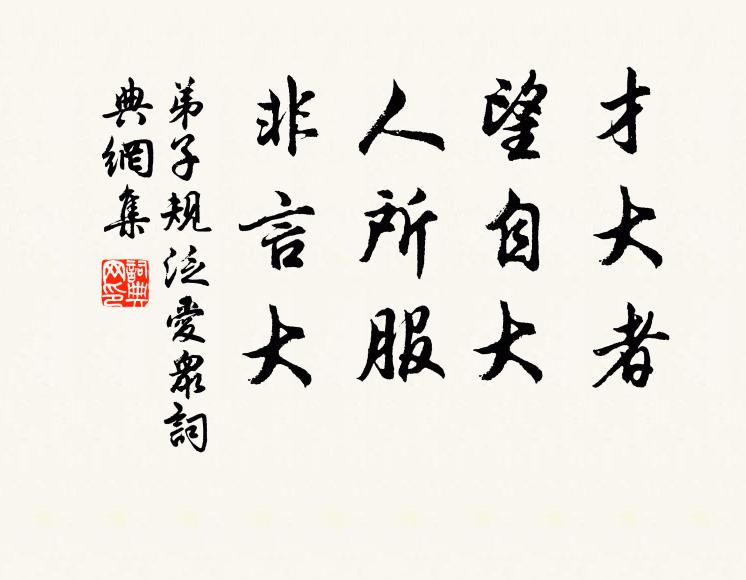 才大者
望自大
人所服
非言大
弟子規泛愛眾詞
典網集
詞典
网印